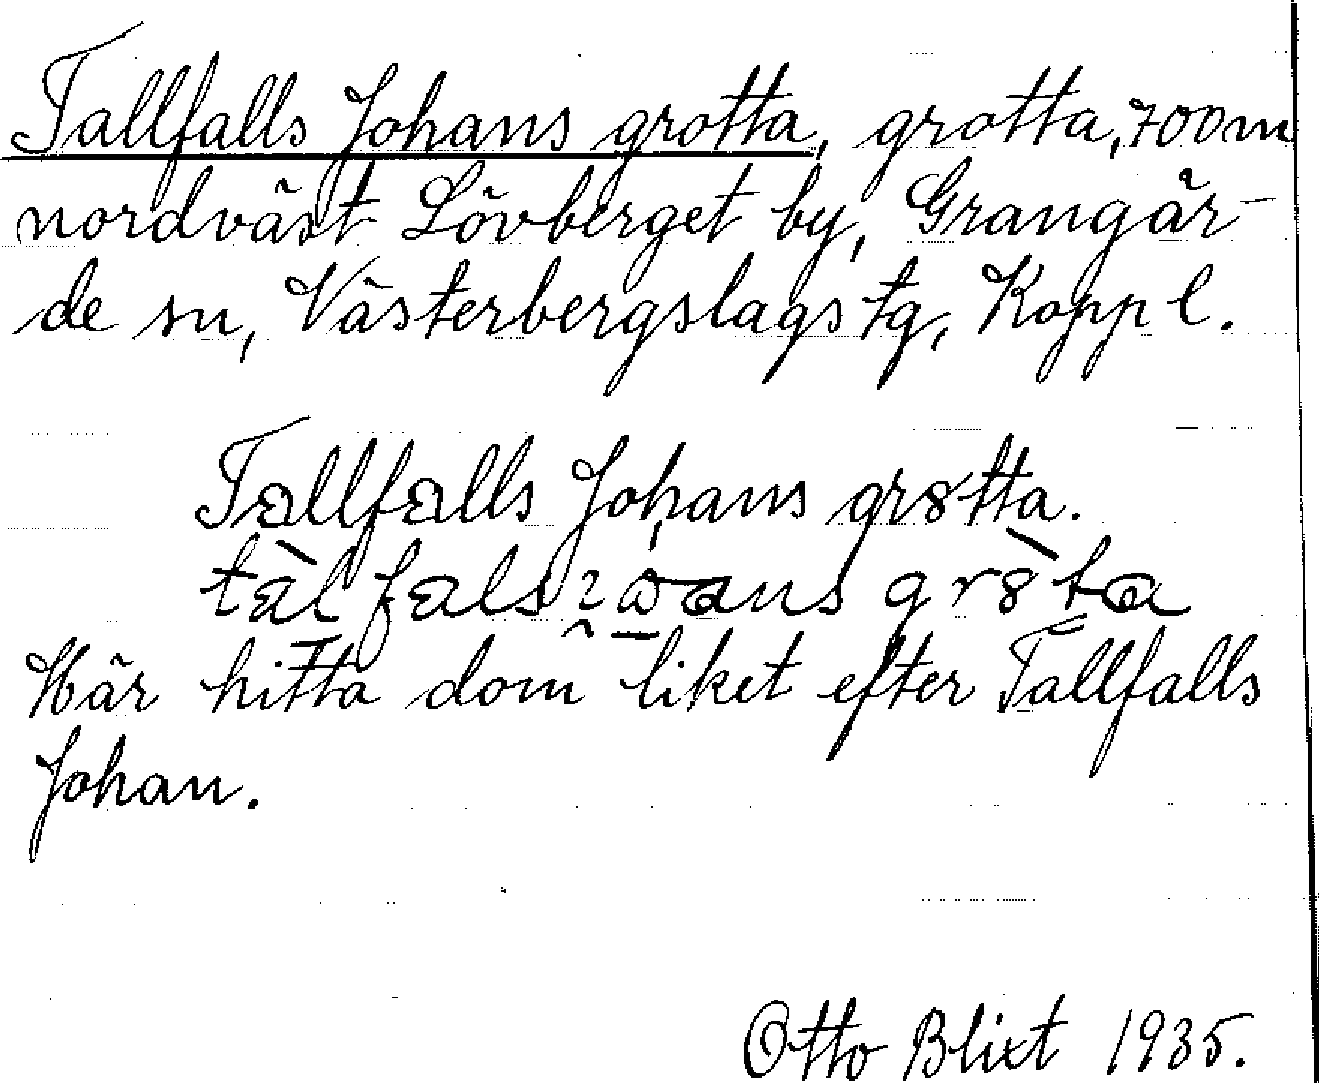 Tallfalls Johans grotta, grotta, 700 m
nordväst Lövberget by, Grangär-
de sn, Västerbergslags tg, Kopp l.
Tallfalls Johans grotta.
Här hitta dom liket efter Tallfalls
Johan.
Otto Blixt 1935.